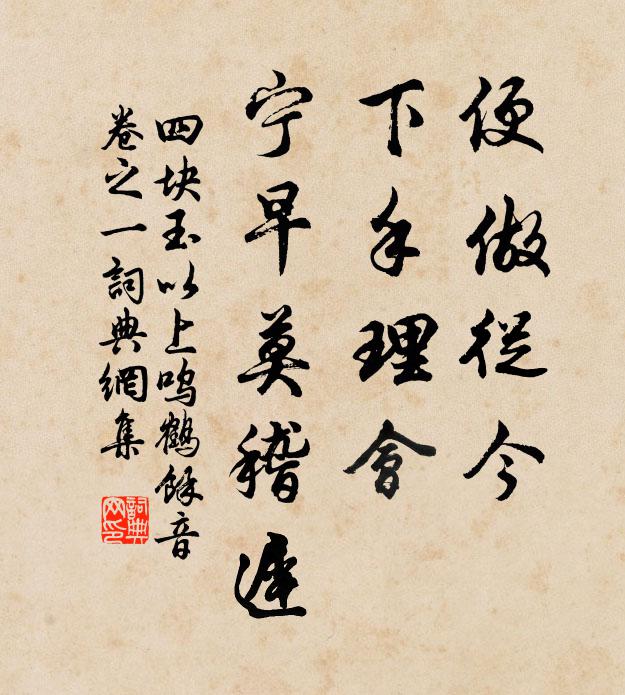 便做從今
下手理會
宁早莫稽遲
四块玉以上鸣鶴餘音
卷之一詞典網集
詞典
网印